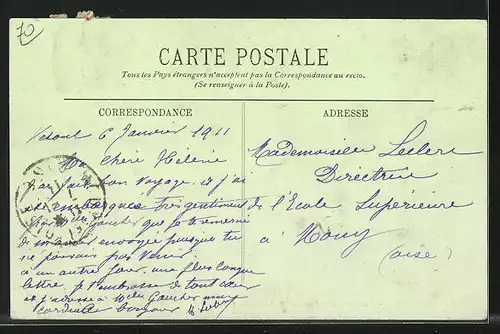 70
CARTE POSTALE
Tous les Pays étrangers n'acceptent pas la Correspondance au recto.
(Se renseigner à la Poste).
CORRESPONDANCE
6 Janvier 1911
Ma chère Hélène
J'ai fait bon voyage et j'ai
très gentiment
que je te remercie
de m'avoir envoyée puisque tu
ne pouvais pas venir
à un autre jour, une plus longue
lettre, je t'embrasse de tout cœur
et j'adresse à
cordial bonjour
ADRESSE
Mademoiselle Leclere
Directrice
de l'Ecole Supérieure
à Mouy
(Oise)